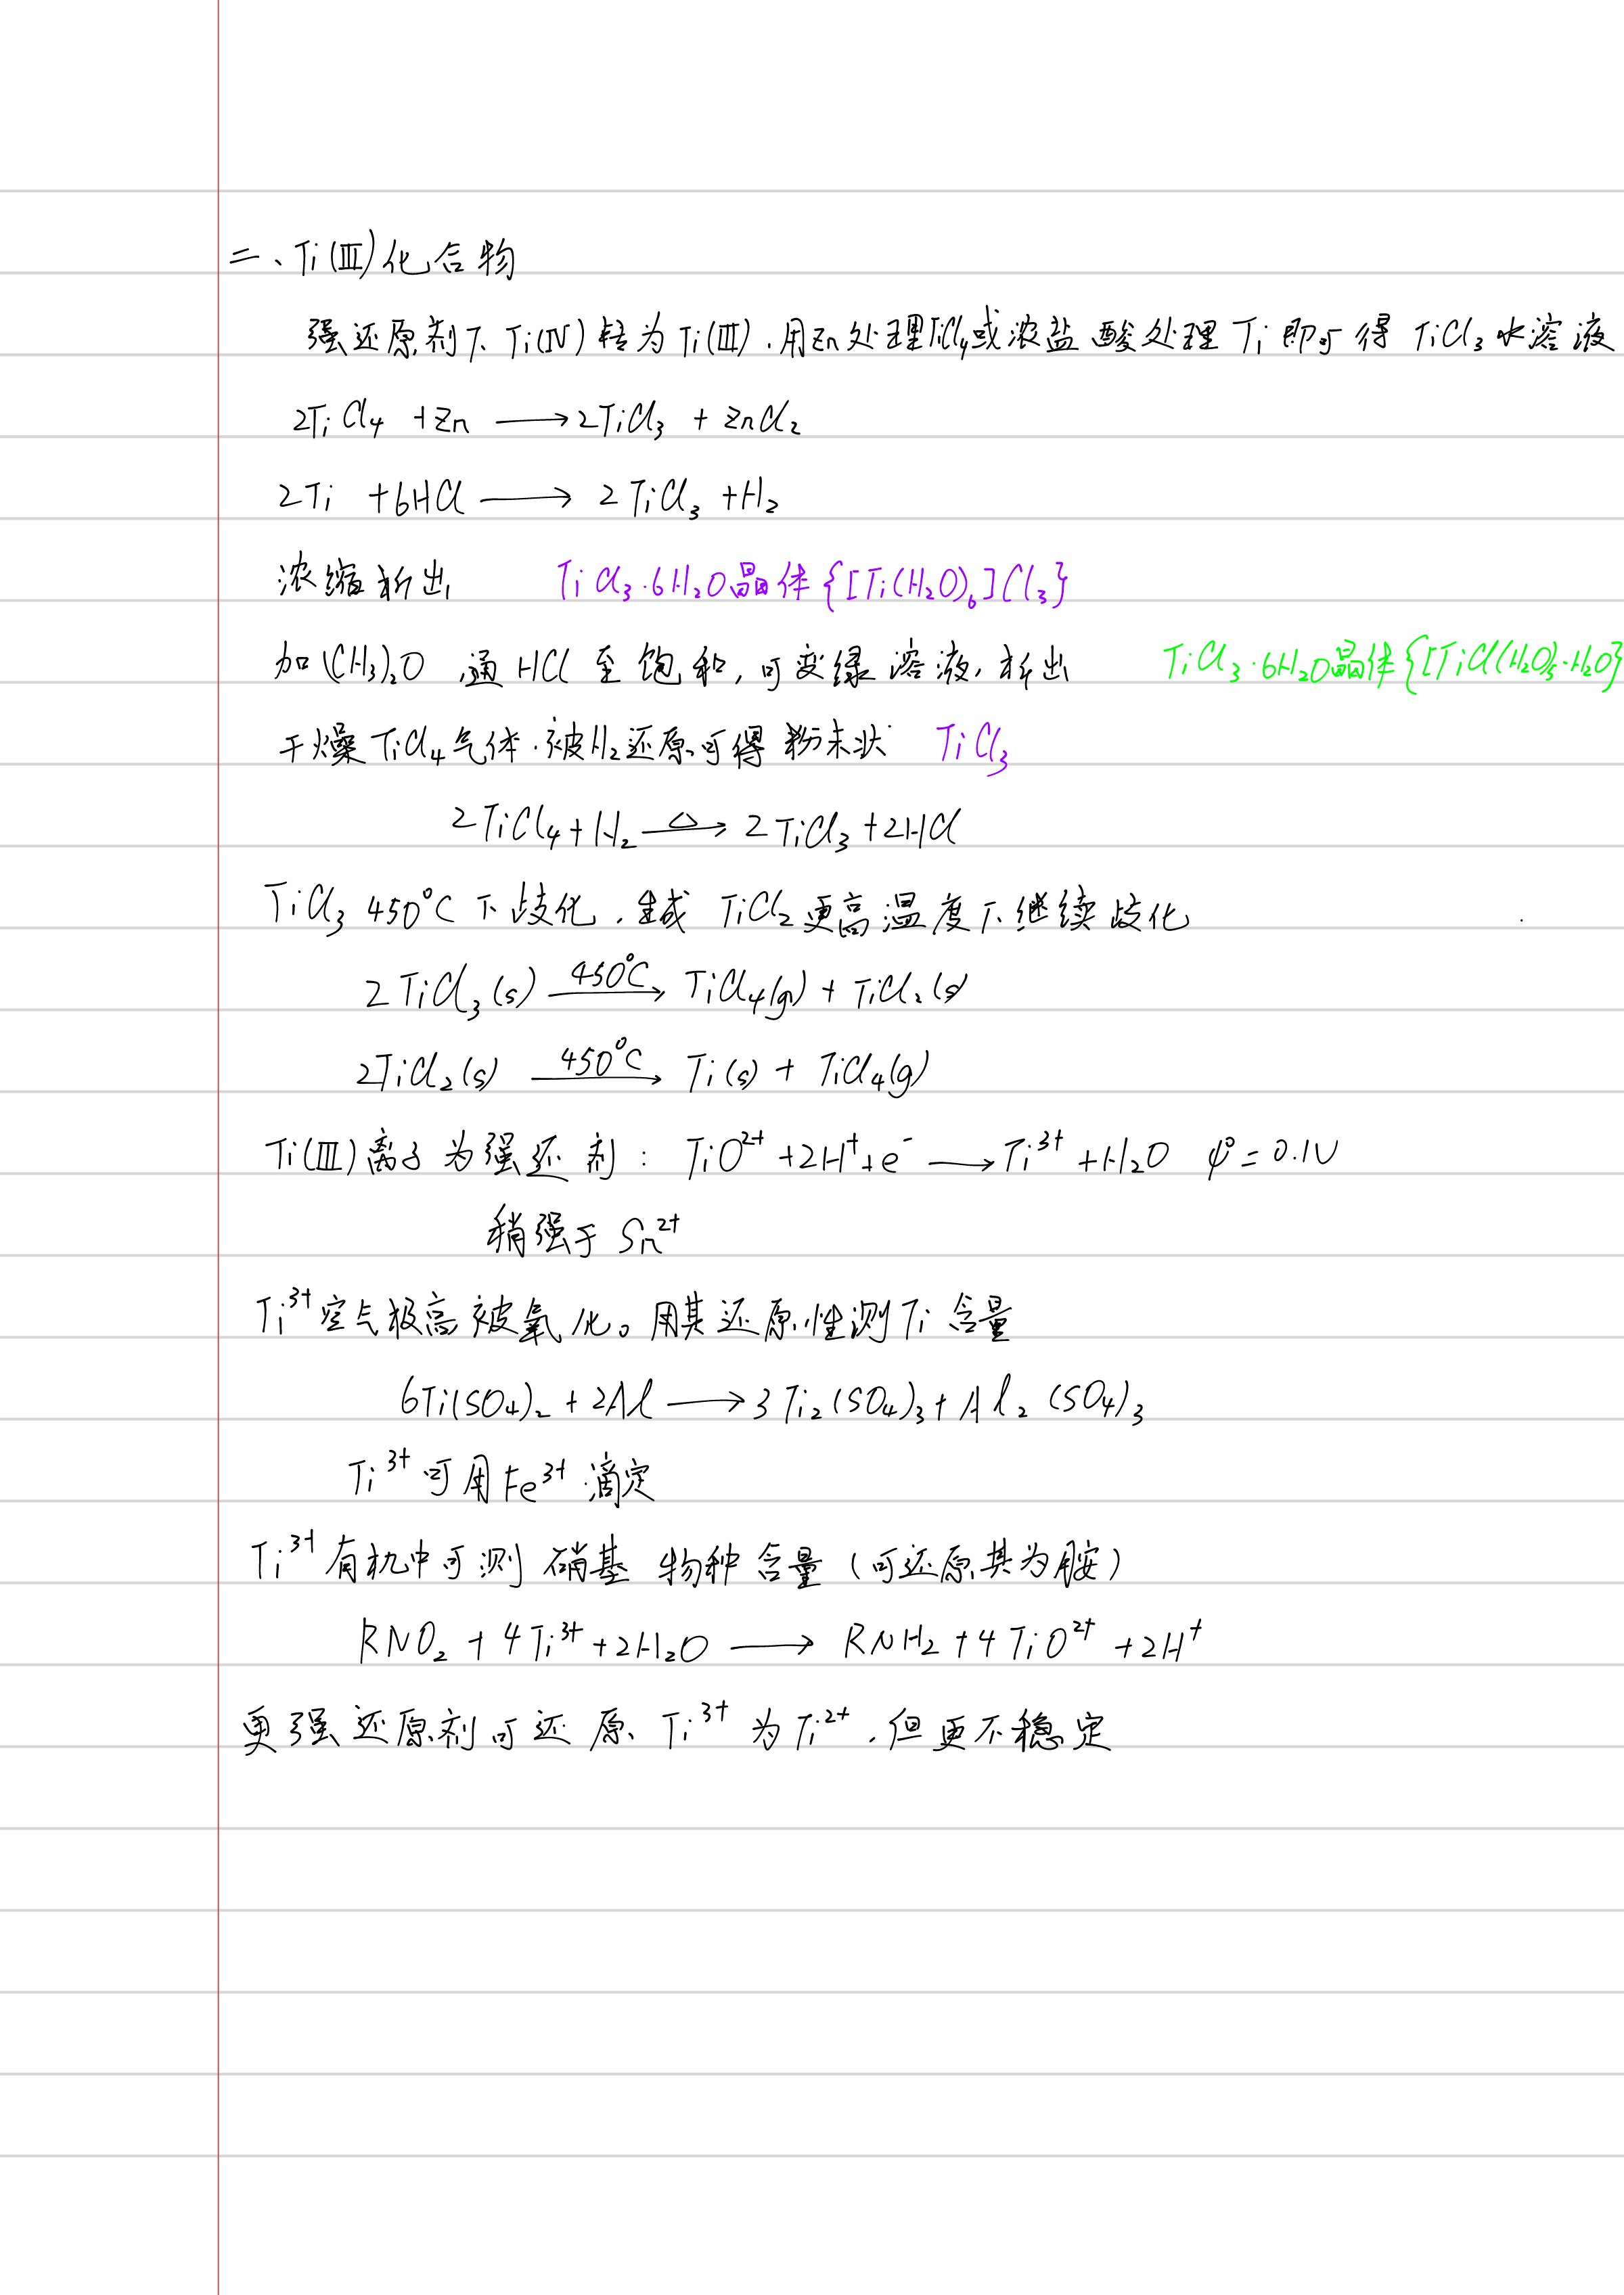 二、Ti(Ⅲ)化合物
强还原剂下 Ti(Ⅳ)转为Ti(Ⅲ),用Zn处理TiCl₄或浓盐酸处理Ti即可得 TiCl₃水溶液
2TiCl₄ +Zn ⟶ 2TiCl₃ + ZnCl₂
2Ti +6HCl ⟶ 2TiCl₃ +H₂
浓缩析出 TiCl₃·6H₂O晶体{[Ti(H₂O)₆]Cl₃}
加(CH₃)₂O,通HCl至饱和,可变绿溶液,析出 TiCl₃·6H₂O晶体{[TiCl(H₂O)₅·H₂O}
干燥TiCl₄气体,被H₂还原可得粉末状 TiCl₃
2TiCl₄+H₂ —△→ 2TiCl₃+2HCl
TiCl₃ 450°C下歧化,生成 TiCl₂更高温度下继续歧化
2TiCl₃(s) —450°C→ TiCl₄(g) + TiCl₂(s)
2TiCl₂(s) —450°C→ Ti(s) + TiCl₄(g)
Ti(Ⅲ)离子为强还剂: TiO²⁺+2H⁺+e⁻ ⟶ Ti³⁺+H₂O φ°=0.1V
稍强于 Sn²⁺
Ti³⁺空气极高被氧化。用其还原性测Ti含量
6Ti(SO₄)₂+2Al ⟶ 3Ti₂(SO₄)₃+Al₂(SO₄)₃
Ti³⁺可用Fe³⁺滴定
Ti³⁺有机中可测硝基物种含量(可还原其为胺)
RNO₂+4Ti³⁺+2H₂O ⟶ RNH₂+4TiO²⁺+2H⁺
更强还原剂可还原 Ti³⁺为Ti²⁺,但更不稳定